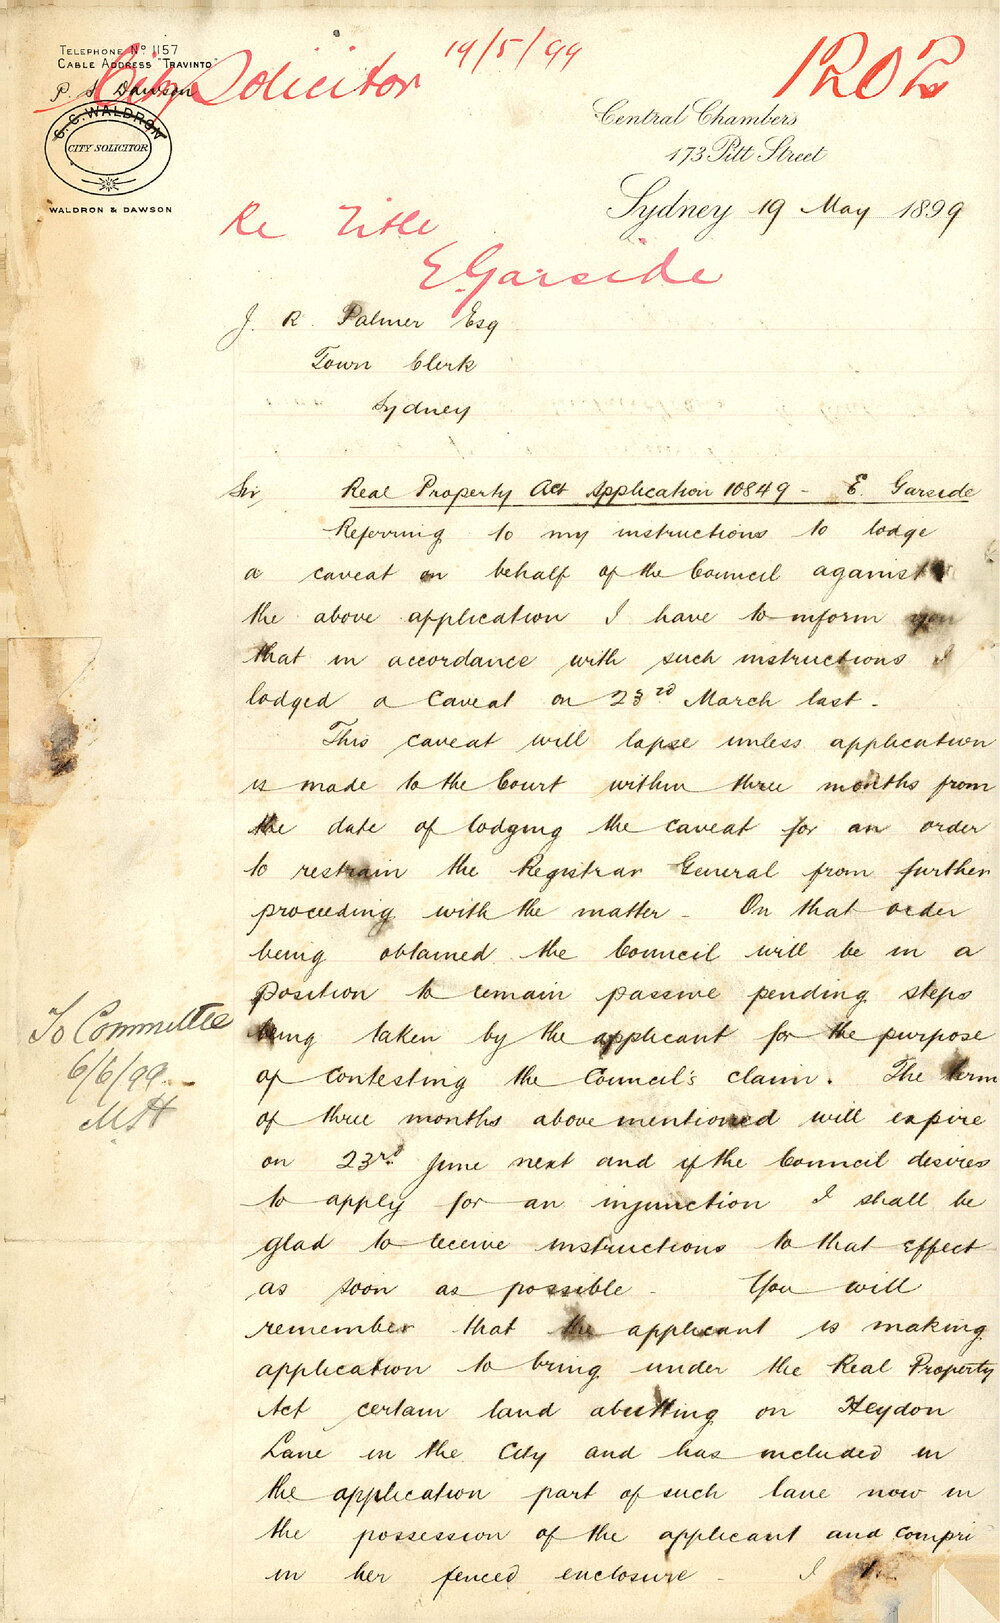 TELEPHONE No 1157
CABLE ADDRESS "TRAVINTO"
City Solicitor 19/5/99
1202
P S Dawson
C. C. WALDRON
CITY SOLICITOR
WALDRON & DAWSON
Central Chambers
173 Pitt Street
Sydney 19 May 1899
Re Title
E. Garside
J. R. Palmer Esq
Town Clerk
Sydney
Sir, Real Property Act Application 10849 - E. Garside
Referring to my instructions to lodge
a caveat on behalf of the Council against
the above application I have to inform you
that in accordance with such instructions I
lodged a Caveat on 23rd March last.
This caveat will lapse unless application
is made to the Court within three months from
the date of lodging the caveat for an order
to restrain the Registrar General from further
proceeding with the matter - On that order
being obtained the Council will be in a
position to remain passive pending steps
being taken by the applicant for the purpose
of contesting the Council's claim. The term
of three months above mentioned will expire
on 23rd June next and if the Council desires
to apply for an injunction I shall be
glad to receive instructions to that effect
as soon as possible - You will
remember that the applicant is making
application to bring under the Real Property
Act certain land abutting on Heydon
Lane in the City and has included in
the application part of such lane now in
the possession of the applicant and compri
in her fenced enclosure - I
To Committee
6/6/99